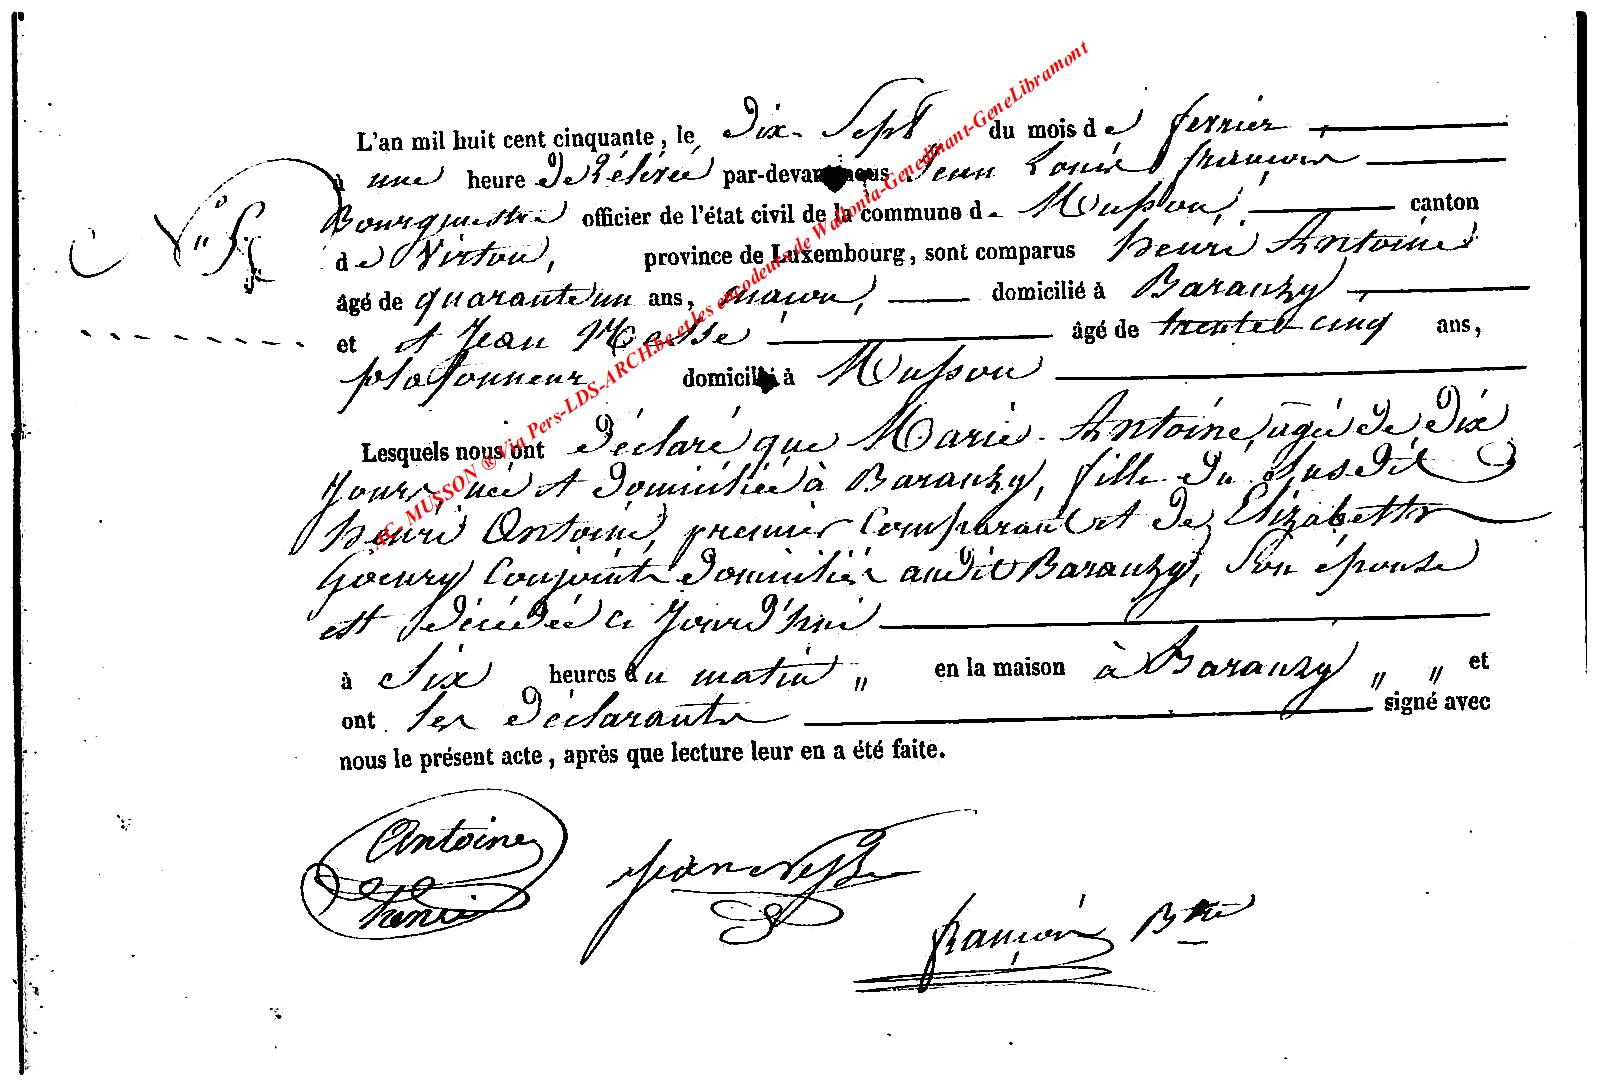 L'an mil huit cent cinquante, le dix-Sept du mois de fevrier
à une heure de rélévée par-devant nous Jean Louis françois
N° 5
Bourguestre officier de l'état civil de la commune de Musson, canton
de Virton, province de Luxembourg, sont comparus henri Antoine
âgé de quarante un ans, maçon, domicilié à Baranzy
et et Jean Masse âgé de trente cinq ans,
plafonneur domicilié à Musson
Lesquels nous ont déclaré que Marie Antoine, agée de dix
Jours, née et domiciliée à Baranzy, fille du susdit
henri Antoine, premier Comparant et de Elizabette
Goeury Conjoints domiciliés audit Baranzy, Son épouse
est décédée ce Jourd'hui
à Six heures du matin " en la maison à Baranzy " " et
ont les déclarants signé avec
nous le présent acte, après que lecture leur en a été faite.
Antoine
henri
françois Btre
AC MUSSON ® Via Pers-LDS-ARCH.be et les encodeurs de Wallonia-Genedinant-GeneLibramont